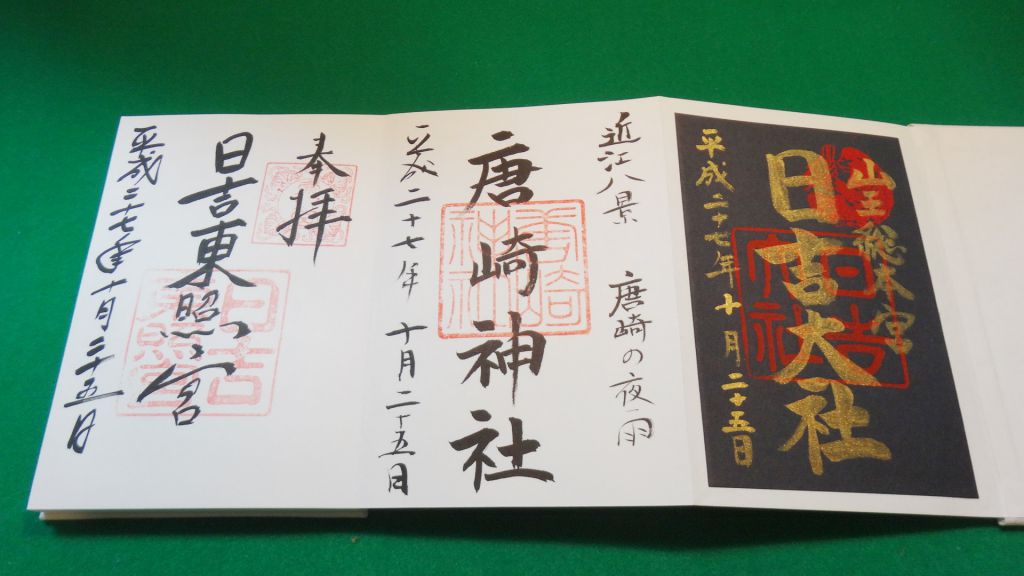 山王総本宮
日吉大社
平成二十七年十月二十五日
日吉大社
近江八景 唐崎の夜雨
唐崎神社
平成二十七年十月二十五日
唐崎神社
奉拝
日吉東照宮
平成二七年十月二十五日
日吉東照宮